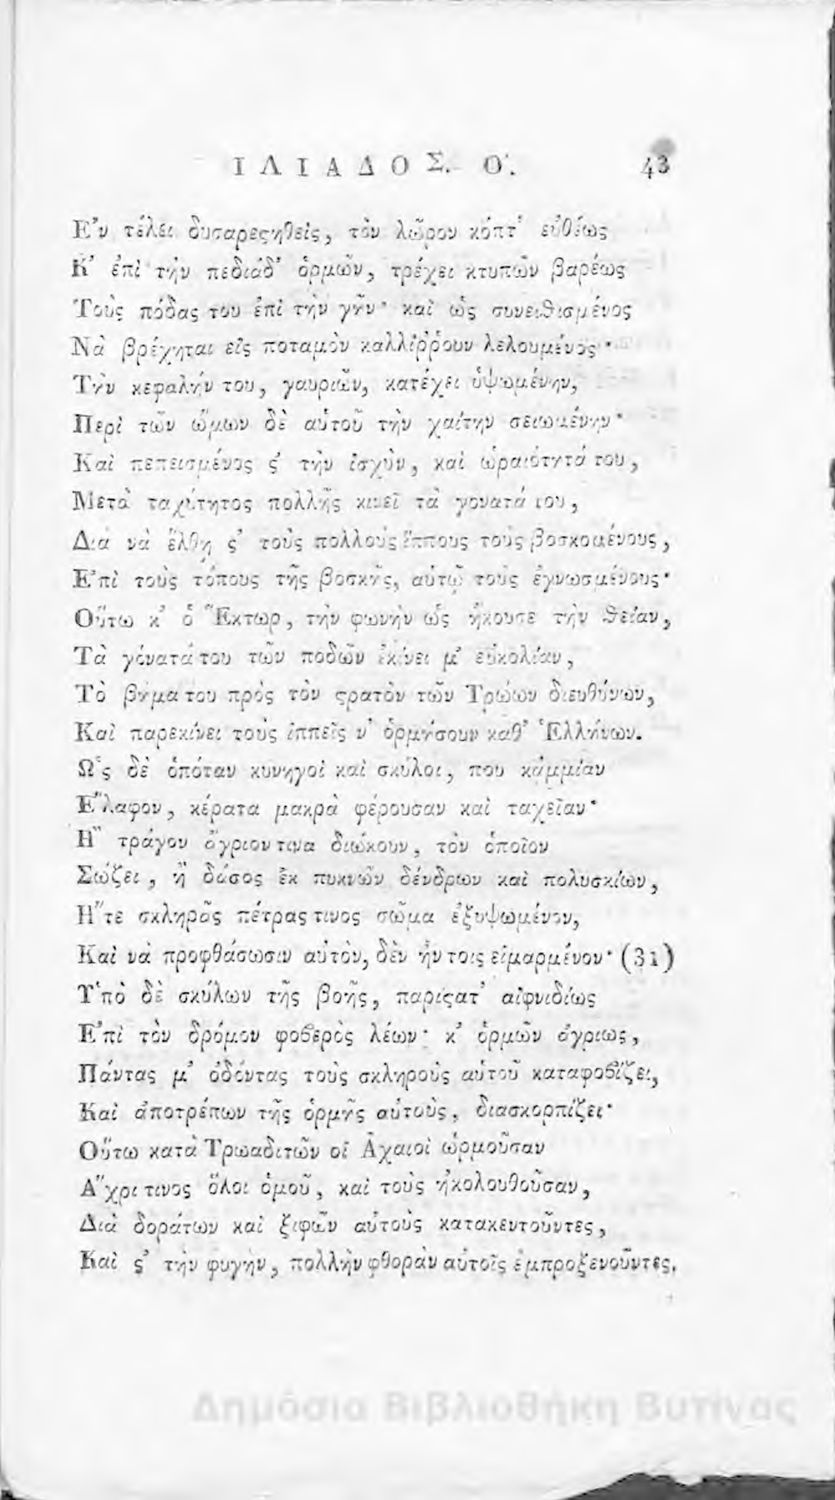 ΙΛΙΑΔΟΣ. Ο'. 43
Ε'ν τέλει δυσαρεςηθεὶς, τὸν λῶρον κόπτ' εὐθέως
Κ' ἐπὶ τὴν πεδιάδ' ὁρμῶν, τρέχει κτυπῶν βαρέως
Τοὺς πόδας του ἐπὶ τὴν γῆν· καὶ ὡς συνειθισμένος
Νὰ βρέχηται εἰς ποταμὸν καλλίῤῥουν λελουμένος·
Τὴν κεφαλήν του, γαυριῶν, κατέχει ὑψωμένην,
Περὶ τῶν ὤμων δὲ αὑτοῦ τὴν χαίτην σειωμένην·
Καὶ πεπεισμένος ς' τὴν ἰσχὺν, καὶ ὡραιότητά του,
Μετὰ ταχύτητος πολλῆς κινεῖ τὰ γόνατά του,
Διὰ νὰ ἔλθη ς' τοὺς πολλοὺς ἵππους τοὺς βοσκομένους,
Ε'πὶ τοὺς τόπους τῆς βοσκῆς, αὐτῷ τοὺς ἐγνωσμένους·
Οὕτω κ' ὁ Ἕκτωρ, τὴν φωνὴν ὡς ἤκουσε τὴν θείαν,
Τὰ γόνατά του τῶν ποδῶν ἐκίνει μ' εὐκολίαν,
Τὸ βῆμα του πρὸς τὸν ςρατὸν τῶν Τρώων διευθύνων,
Καὶ παρεκίνει τοὺς ἱππεῖς ν' ὁρμήσουν καθ' Ἑλλήνων.
Ω'ς δὲ ὁπόταν κυνηγοὶ καὶ σκύλοι, που κάμμίαν
Ε"λαφον, κέρατα μακρὰ φέρουσαν καὶ ταχεῖαν·
Η" τράγον ἄγριον τινα διώκουν, τὸν ὁποῖον
Σώζει, ἢ δάσος ἐκ πυκνῶν δένδρων καὶ πολυσκίων,
Η"τε σκληρᾶς πέτρας τινος σῶμα ἐξυψωμένον,
Καὶ νὰ προφθάσωσιν αὐτὸν, δὲν ἦν τοις εἱμαρμένον· (31)
Υ'πὸ δὲ σκύλων τῆς βοῆς, παρίςατ' αἰφνιδίως
Ε'πὶ τὸν δρόμον φοβερὸς λέων· κ' ὁρμῶν ἀγρίως,
Πάντας μ' ὀδόντας τοὺς σκληροὺς αὑτοῦ καταφοβίζει,
Καὶ ἀποτρέπων τῆς ὁρμῆς αὐτοὺς, διασκορπίζει·
Οὕτω κατὰ Τρωαδιτῶν οἱ Ἀχαιοὶ ὡρμοῦσαν
Α"χρι τινος ὅλοι ὁμοῦ, καὶ τοὺς ἠκολουθοῦσαν,
Διὰ δοράτων καὶ ξιφῶν αὐτοὺς κατακεντοῦντες,
Καὶ ς' τὴν φυγὴν, πολλὴν φθορὰν αὐτοῖς ἐμπροξενοῦντες.
Δημόσια Βιβλιοθήκη Βυτίνας